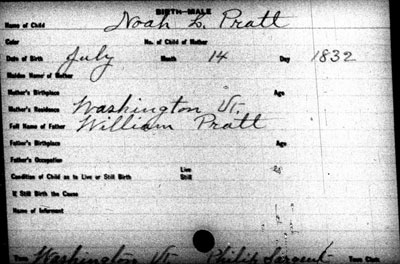 BIRTH—MALE
Name of Child Noah L. Pratt
Color No. of Child of Mother
Date of Birth July Month 14 Day 1832
Maiden Name of Mother
Mother's Birthplace Age
Mother's Residence Washington Vt.
Full Name of Father William Pratt
Father's Birthplace Age
Father's Occupation
Condition of Child as to Live or Still Birth Live
Still
If Still Birth the Cause
Name of Informant
Town Washington Vt. Philip Sargent Town Clerk